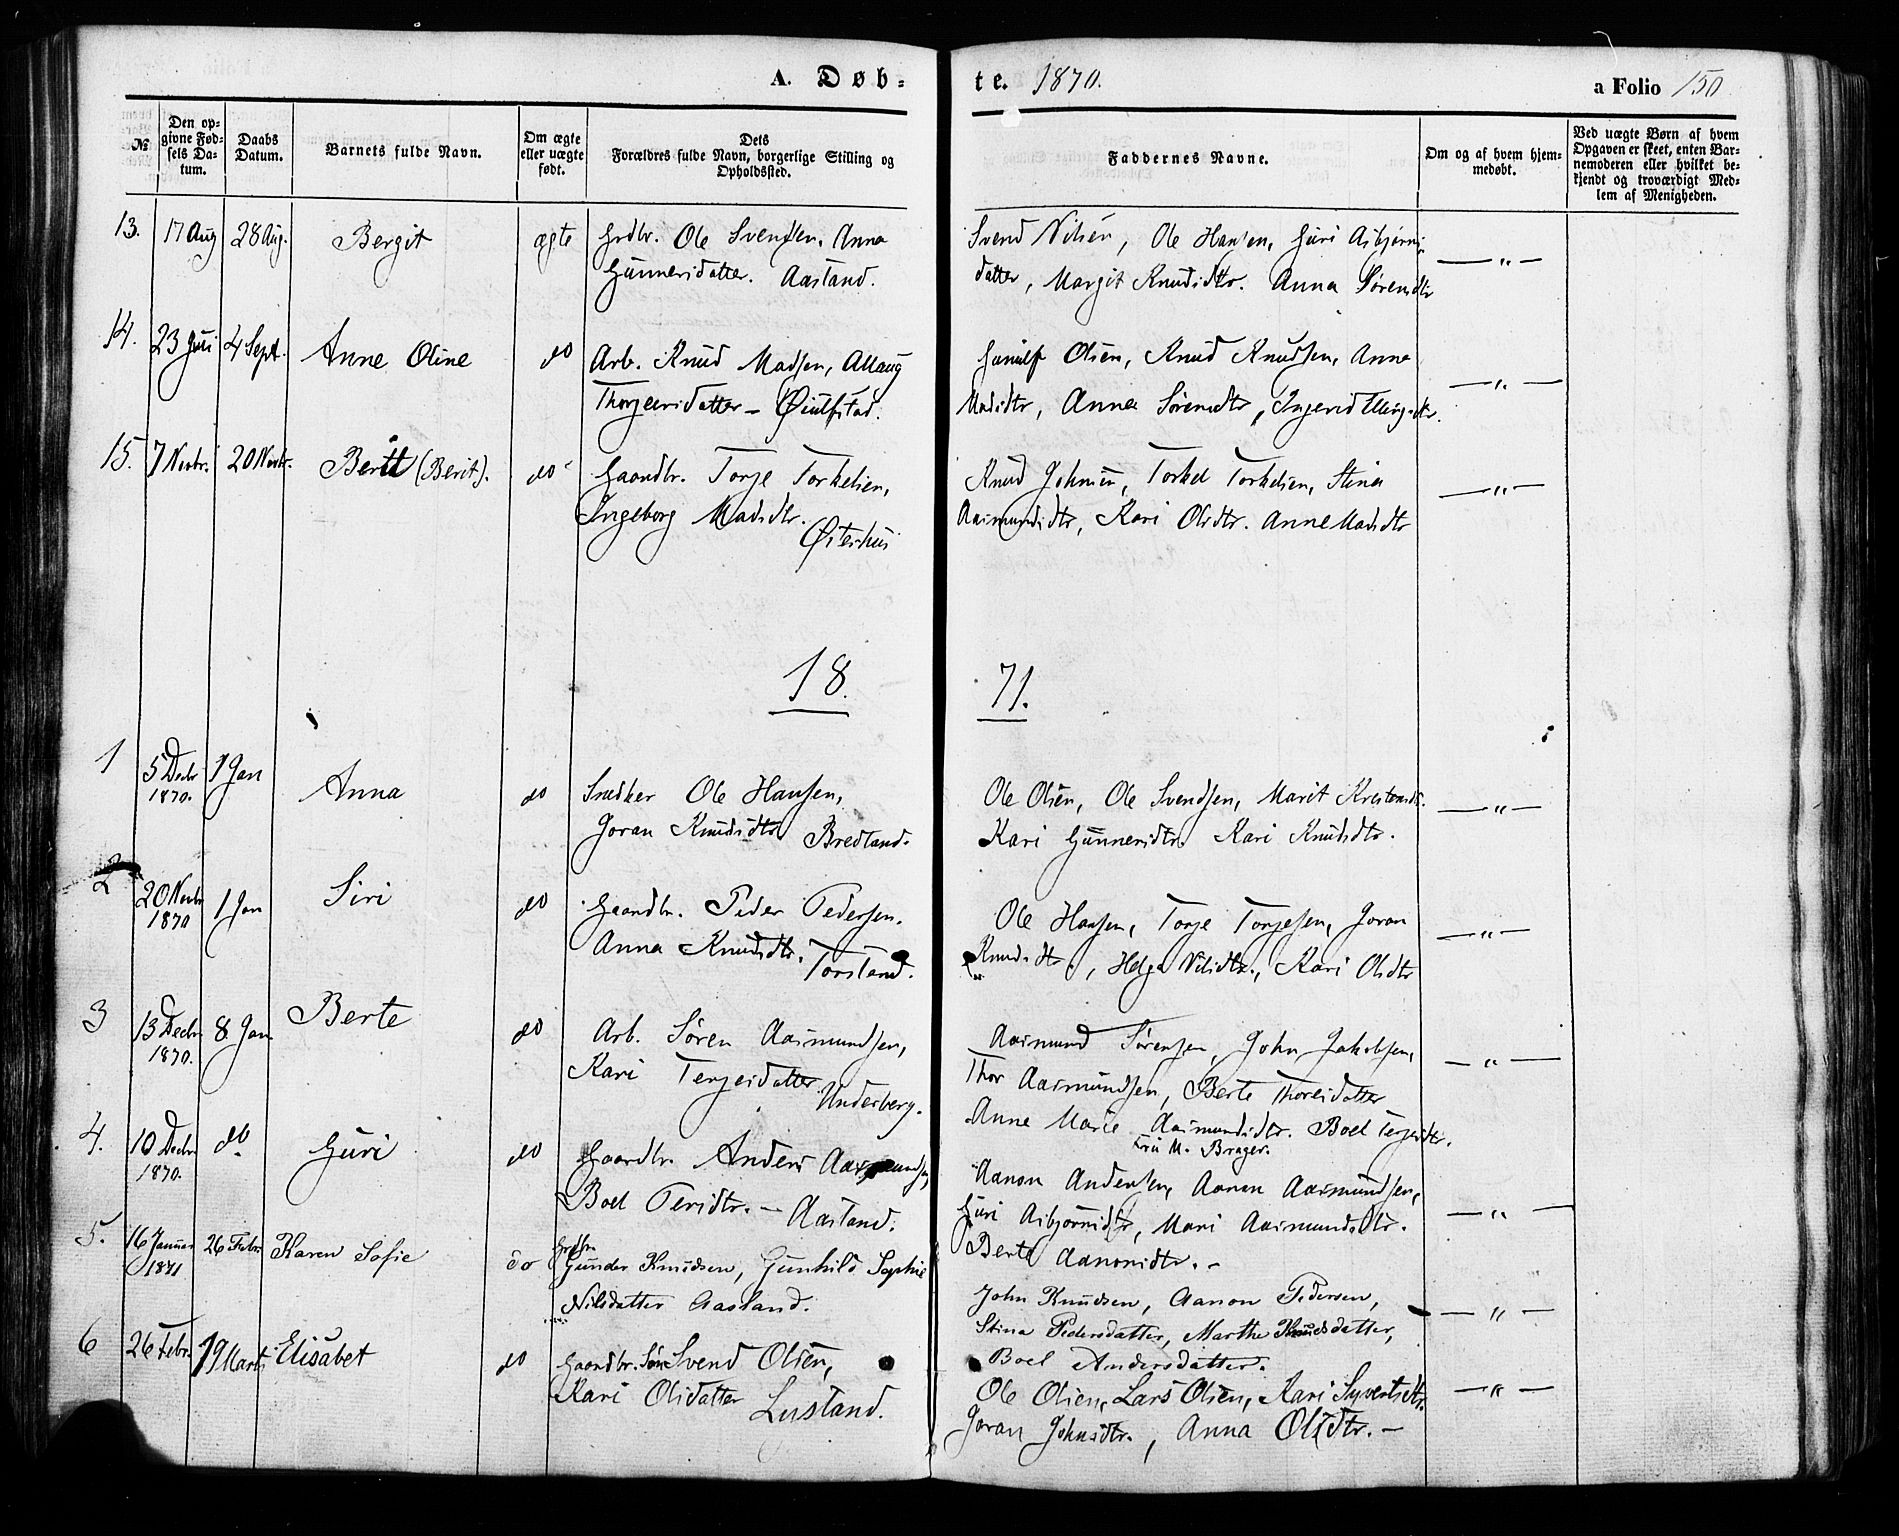 A. Døb-
te. 1870.
a Folio 150
№
Den op-
givne Fød-
sels Da-
tum.
Daabs
Datum.
Barnets fulde Navn.
Om ægte
eller uægte
født.
Dets
Forældres fulde Navn, borgerlige Stilling og
Opholdssted.
Faddernes Navne.
Om og af hvem hjem-
medøbt.
Ved uægte Børn af hvem
Opgaven er skeet, enten Bar-
nemoderen eller hvilket be-
kjendt og troværdigt Med-
lem af Menigheden.
13. 17 Aug 28 Aug. Bergit ægte Grdbr. Ole Svendsen, Anna
Gunnersdatter. Aasland.
Svend Nilsen, Ole Hansen, Guri Asbjørns-
datter, Margit Knudsdtr. Anna Sørensdtr
— " —
14. 23 Juli 4 Sept. Anne Oline do Arb. Knud Madsen, Allaug
Thorjersdatter — Øiulfstad.
Olsen, Knud Knudsen, Anne
Madsdtr, Anna Sørensdtr, Ingerid
— " —
15. 7 Novbr. 20 Novbr. Berit (Berit). do Gaardbr. Torje Torkelsen,
Ingeborg Madsdtr.
Østerhus
Knud Johnsen, Torkel Torkelsen, Stina
Aasmundsdtr, Kari Olsdtr. Anne Madsdtr
— " —
18. 71.
1 5 Decbr 1 Jan Anna do Snedker Ole Hansen,
1870.
Joran Knudsdtr Bredland.
Ole Olsen, Ole Svendsen, Marit
Kari Gunnersdtr Kari Knudsdtr.
— " —
2 20 Novbr 1 Jan Siri do Gaardbr. Peder Pedersen.
1870
Anna Knudsdtr. Torsland.
Ole Hansen, Torje Torjesen, Joran
Knudsdtr., Helge Nilsdtr., Kari Olsdtr
— " —
3 13 Decbr 8 Jan. Berte do Arb. Søren Aasmundsen,
1870.
Kari Terjesdatter
Underberg.
Aasmund Sørensen, John Jakobsen,
Thor Aasmundsen, Berte Thoresdatter
Anne Marie Aasmundsdtr. Boel Terjesdtr.
Fru M. Brager.
— " —
4. 10 Decbr do Guri do Gaardbr. Anders Aasmundsen
1870.
Boel Persdtr. — Aasland.
Aanon Andersen, Aanon Aasmundsen,
Guri Asbjørnsdtr, Mari Aasmundsdtr.
Berte Aanonsdtr. —
— " —
5. 16 Januar 26 Febr. Karen Sofie do Grdbr.
1871
Gunder Knudsen, Gunhild Sophie
Nilsdatter Aasland.
John Knudsen, Aanon Pedersen,
Stina Pedersdatter, Marthe Knudsdatter,
Boel Andersdatter.
— " —
6 26 Febr. 19 Marts Elisabet do Gaardbr. Svend Olsen,
Kari Olsdatter Lusland.
Ole Olsen, Lars Olsen, Kari Syvertsdtr.
Joran Johnsdtr., Anna Olsdtr. —
— " —